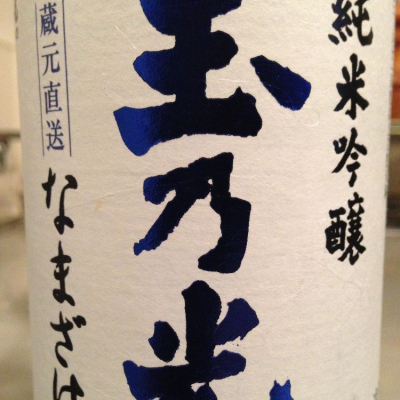 純米吟醸
玉乃光
蔵元直送
なまざけ